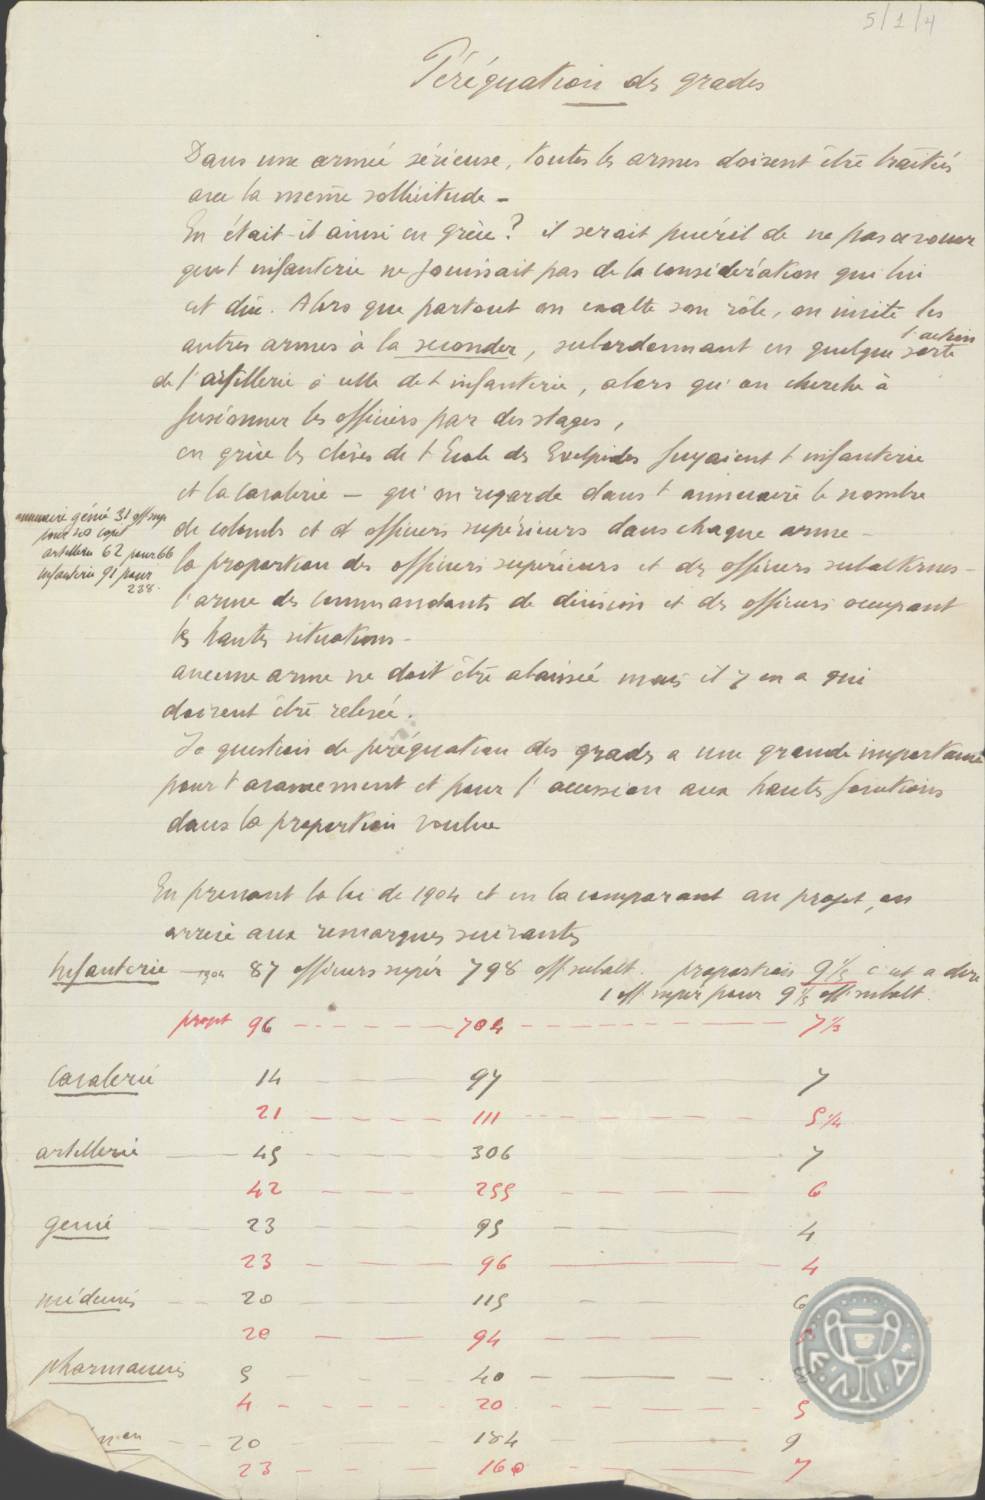 5/1/4
Péréquation des grades
Dans une armée sérieuse, toutes les armes doivent être traités
avec la même sollicitude -
En était-il ainsi en grèce ? il serait puéril de ne pas avouer
que l'infanterie ne jouissait pas de la considération qui lui
est due. Alors que partout on exalte son rôle, on invite les
autres armes à la seconder, subordonnant en quelque sorte l'action
de l'artillerie à celle de l'infanterie, alors qu'on cherche à
fusionner les officiers par des stages,
en grèce les élèves de l'Ecole des Evelpides fuyaient l'infanterie
et la cavalerie - qu'on regarde dans l'annuaire le nombre
de colonels et d'officiers supérieurs dans chaque arme -
annuaire génie 31 off sup
pour capit
artillerie 62 pour 66
infanterie 91 pour
238.
la proportion des officiers supérieurs et des officiers subalternes -
l'arme des commandants de division et des officiers occupant
les hautes situations -
aucune arme ne doit être abaissée mais il y en a qui
doivent être relevée.
La question de péréquation des grades a une grande importance
pour l'avancement et pour l'accession aux hautes fonctions
dans la proportion voulue
En prenant la loi de 1904 et en la comparant au projet, on
arrive aux remarques suivantes
Infanterie - 1904 87 officiers supér 798 off subalt. proportion 9 1/5 c'est a dire
1 off supér pour 9 1/5 off subalt.
projet 96 704 7 1/3
Cavalerie 14 97 7
21 111 5 1/4
artillerie 45 306 7
42 255 6
génie 23 95 4
23 96 4
médecins 20 115 6
20 94
pharmaciens 5 40
4 20 5
20 184 9
23 160 7